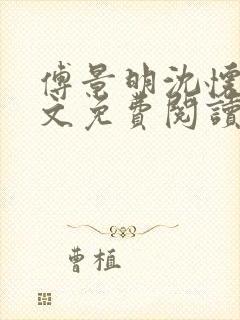 傅景明沈懷
文免費閱讀
曹植